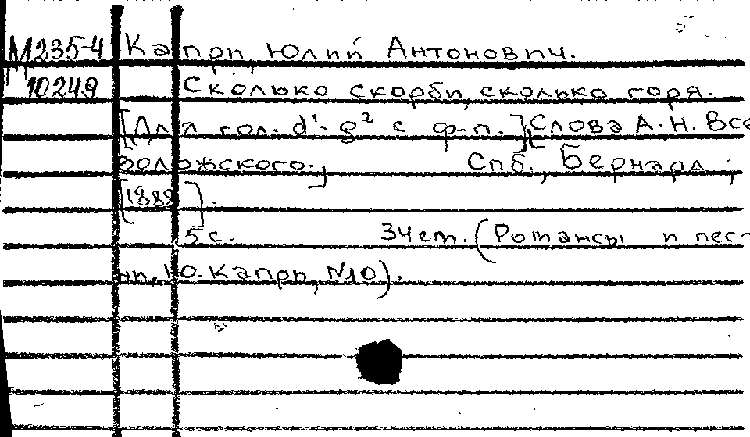 М235-4 Капри, Юлий Антонович.
10249 Сколько скорби, сколько горя.
[Для гол. d¹-g² с ф-п.] [Слова А.Н. Все
воложского.] Спб., Бернард,
[1882].
5 с. 34 см. (Романсы и пес-
ни, Ю. Капри, №10).